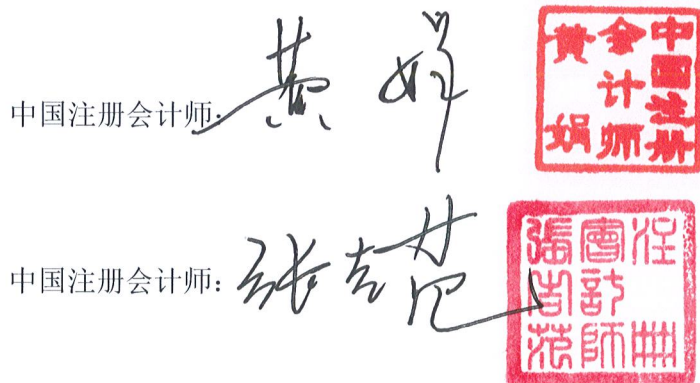 中国注册会计师：黄娟
中国注册
会计师
黄娟
中国注册会计师：张吉范
注冊
會計師
張吉范